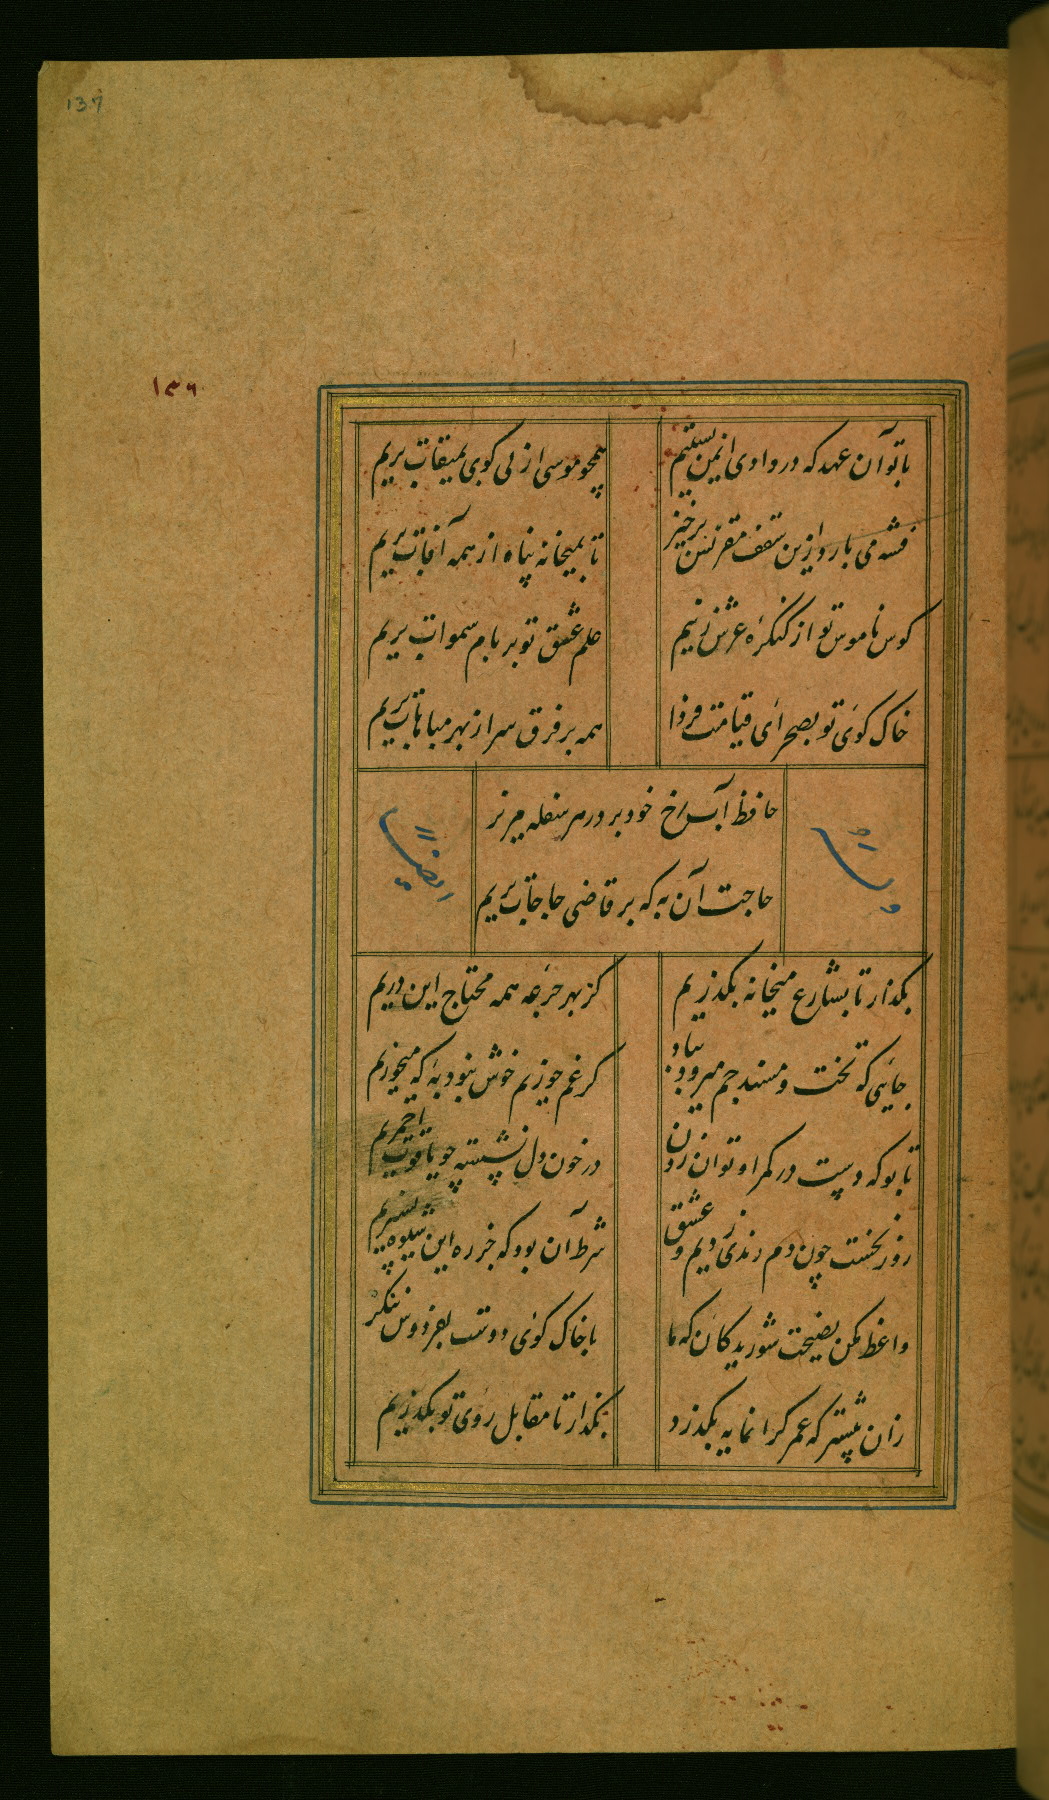 137
۱۳۶
با تو آن عهد که در وادی ایمن بستیم
همچو موسی ارنی کوی بمیقات بریم
فتنه می بارد ازین سقف مقرنس برخیز
تا بمیخانه پناه از همه آفات بریم
کوس ناموس تو از کنکرهٔ عرش زنیم
علم عشق تو بر بام سموات بریم
خاک کوی تو بصحرای قیامت فردا
همه بر فرق سر از بهر مباهات بریم
حافظ آب رخ خود بر در هر سفله مریز
حاجت آن به که بر قاضی حاجات بریم
وله
ایضا
بکذار تا بشارع میخانه بکذریم
کز بهر جرعه همه محتاج این دریم
جایی که تخت و مسند جم میرود بباد
کر غم خوریم خوش نبود به که میخوریم
تا بو که دست در کمر او توان زدن
در خون دل نشسته چو یاقوت احمریم
روز نخست چون دم رندی زدیم و عشق
شرط آن بود که جز ره این شیوه نسپریم
واعظ مکن نصیحت شوریدکان که ما
با خاک کوی دوست بفردوس ننکریم
زان پیشتر که عمر کرانمایه بکذرد
بکذار تا مقابل روی تو بکذریم